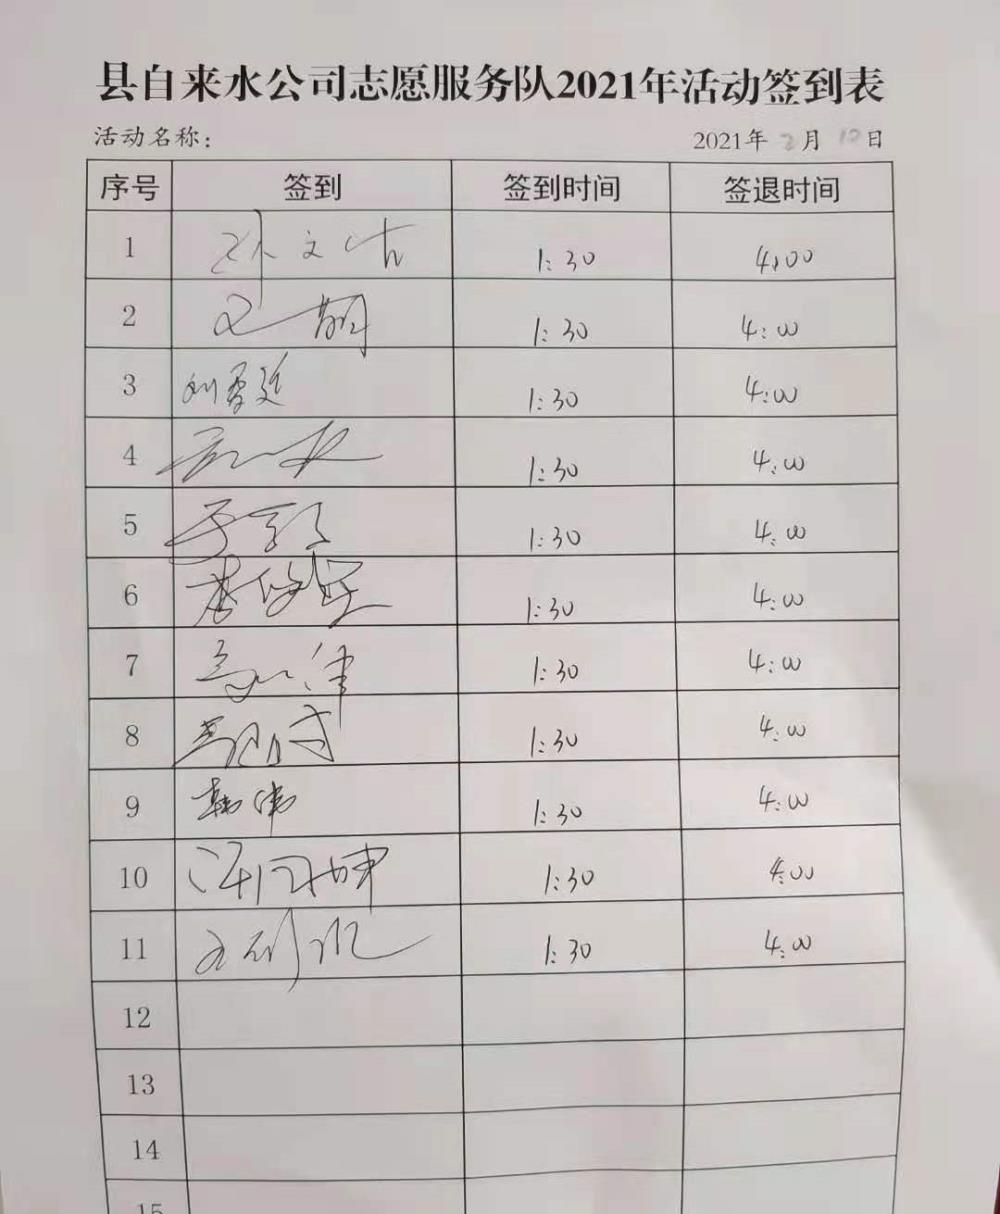 县自来水公司志愿服务队2021年活动签到表
活动名称: 2021年2月 日
序号 签到 签到时间 签退时间
1 孙文 1:30 4:00
2 1:30 4:00
3 1:30 4:00
4 1:30 4:00
5 1:30 4:00
6 1:30 4:00
7 1:30 4:00
8 1:30 4:00
9 韩伟 1:30 4:00
10 1:30 4:00
11 1:30 4:00
12
13
14
15